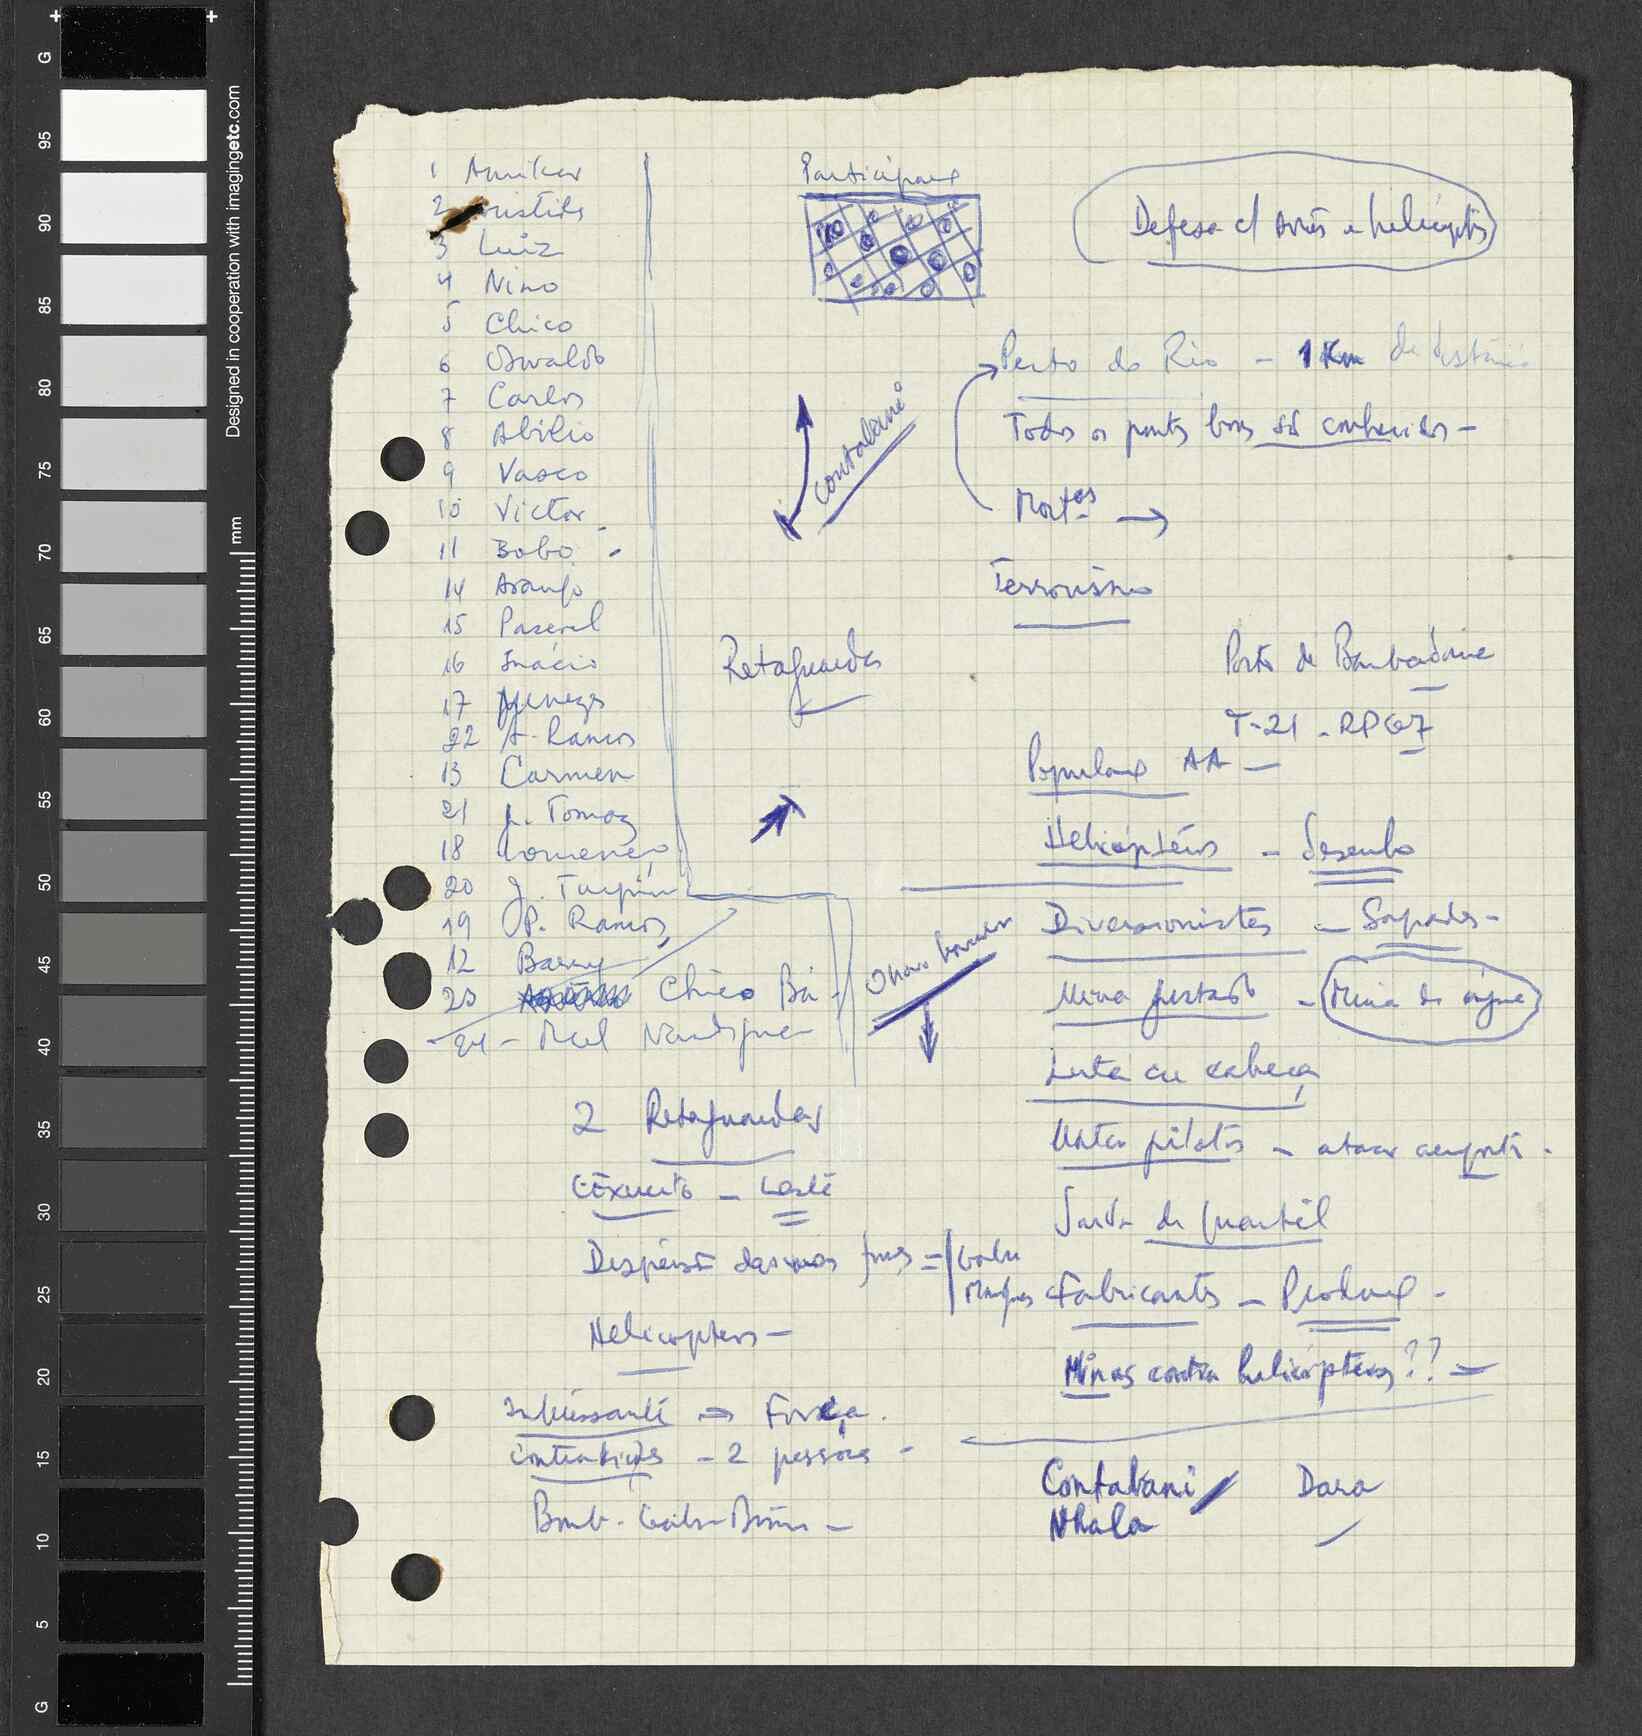 1 Amilcar
2 Aristides
3 Luiz
4 Nino
5 Chico
6 Osvaldo
7 Carlos
8 Abilio
9 Vasco
10 Victor
11 Bobo -
14 Araujo
15 Pascal
16 Inácio
17 Menezes
22 A. Ramos
13 Carmen
21 J. Tomaz
18 Lourenço
20 J. Turpin
19 P. Ramos
12 Barry
23 Chico Bá -
24 - Mel
Participant
contabani
Retaguardas
2 Retaguardas
Exército - Leste
Dispersão das suas forças =
Helicopteros -
Interessante => Força.
contradições - 2 pessoas -
Defesa c/ aviões e helicópts
Perto do Rio - 1 Km de distância
Todos os pontos bons são conhecidos -
Mortos →
Terrorismo
Porto de Bambadinca
T-21 - RPG7
AA -
Helicópteros - desenho
Diversionistas - Sapadores -
Mina - Mina de água
Luta cu cabeça
Matar pilotos - atacar aeroporto -
de quartel
Fabricantes -
Minas contra helicópteros ?? -
Contabani / Dara
Nhala
Designed in cooperation with imagingetc.com
mm
G
95
90
85
80
75
70
65
60
55
50
45
40
35
30
25
20
15
10
5
G